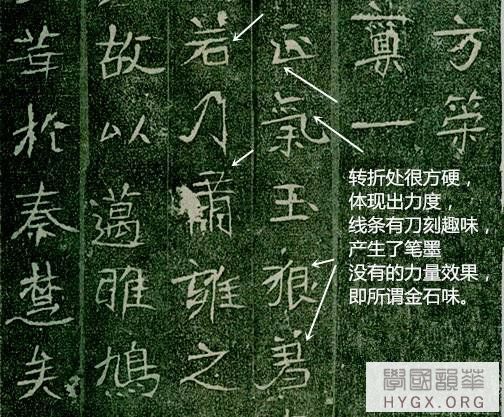 方策
一
正氣玉
若乃肅雍之
故以邁雎鳩
於秦楚矣
转折处很方硬，
体现出力度，
线条有刀刻趣味，
产生了笔墨
没有的力量效果，
即所谓金石味。
學國韻華
HYGX.ORG